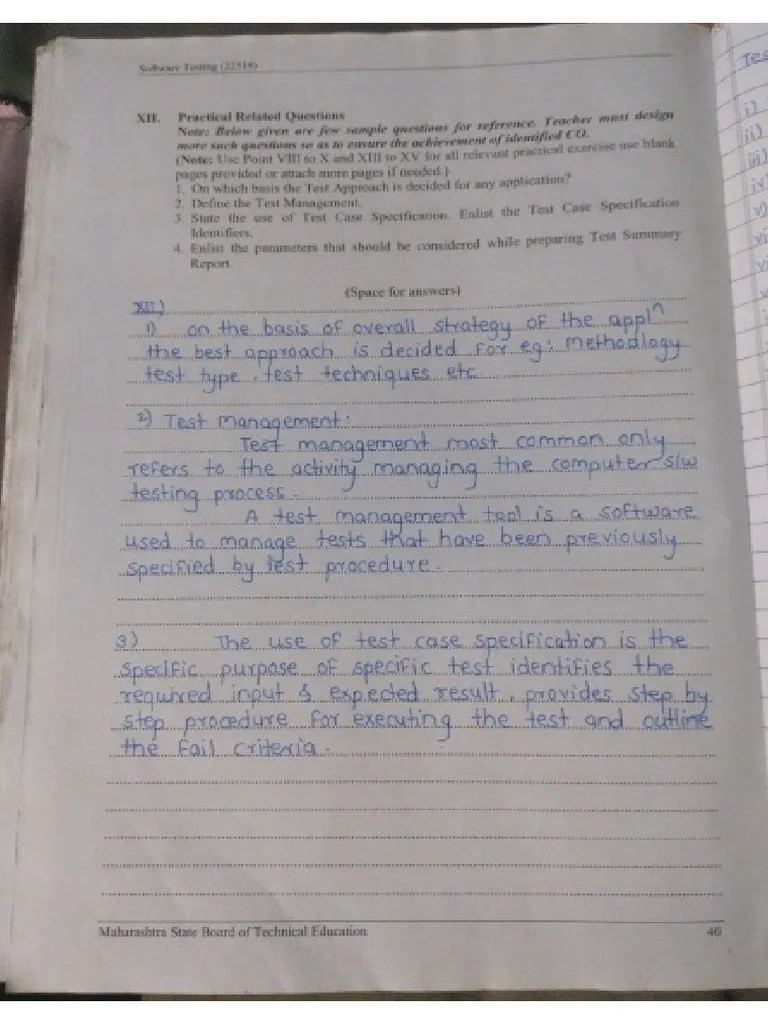 Software Testing (22518)
XII. Practical Related Questions
Note: Below given are few sample questions for reference. Teacher must design
more such questions so as to ensure the achievement of identified CO.
(Note: Use Point VIII to X and XIII to XV for all relevant practical exercise use blank
pages provided or attach more pages if needed.)
1. On which basis the Test Approach is decided for any application?
2. Define the Test Management.
3. State the use of Test Case Specification. Enlist the Test Case Specification
Identifiers.
4. Enlist the parameters that should be considered while preparing Test Summary
Report.
(Space for answers)
XII)
1) on the basis of overall strategy of the appln
the best approach is decided for eg: methodlogy
test type, test techniques etc
2) Test management:
Test management most common only
refers to the activity managing the computer s/w
testing process.
A test management tool is a software
used to manage tests that have been previously
specified by test procedure.
3) The use of test case specification is the
specific purpose of specific test identifies the
required input & expected result, provides step by
step procedure for executing the test and outline
the fail criteria.
Maharashtra State Board of Technical Education 40
Tes
i)
ii)
iii)
iv)
v)
vi